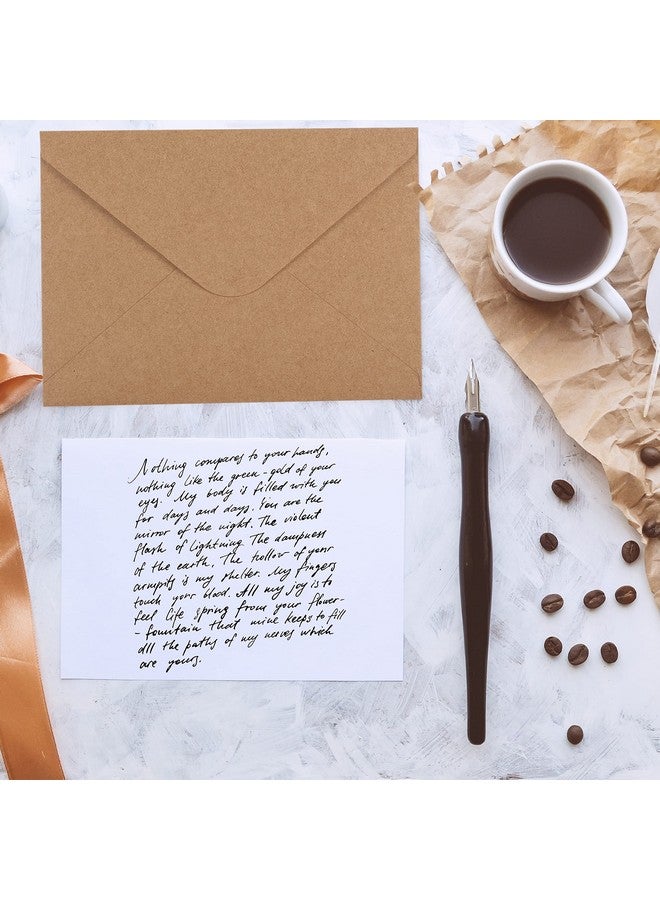 Nothing compares to your hands,
nothing like the green-gold of your
eyes. My body is filled with you
for days and days. You are the
mirror of the night. The violent
flash of lightning. The dampness
of the earth. The hollow of your
armpits is my shelter. My fingers
touch your blood. All my joy is to
feel life spring from your flower-
-fountain that mine keeps to fill
all the paths of my nerves which
are yours.